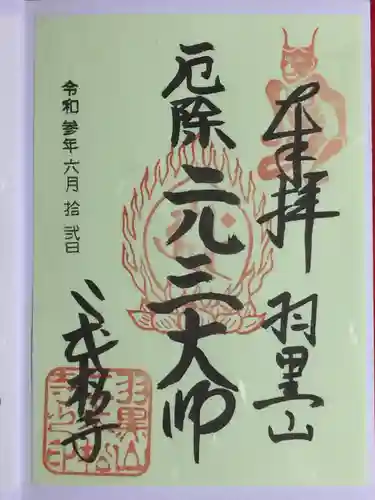 奉拝
羽黒山
厄除 元三大師
令和参年六月拾弐日